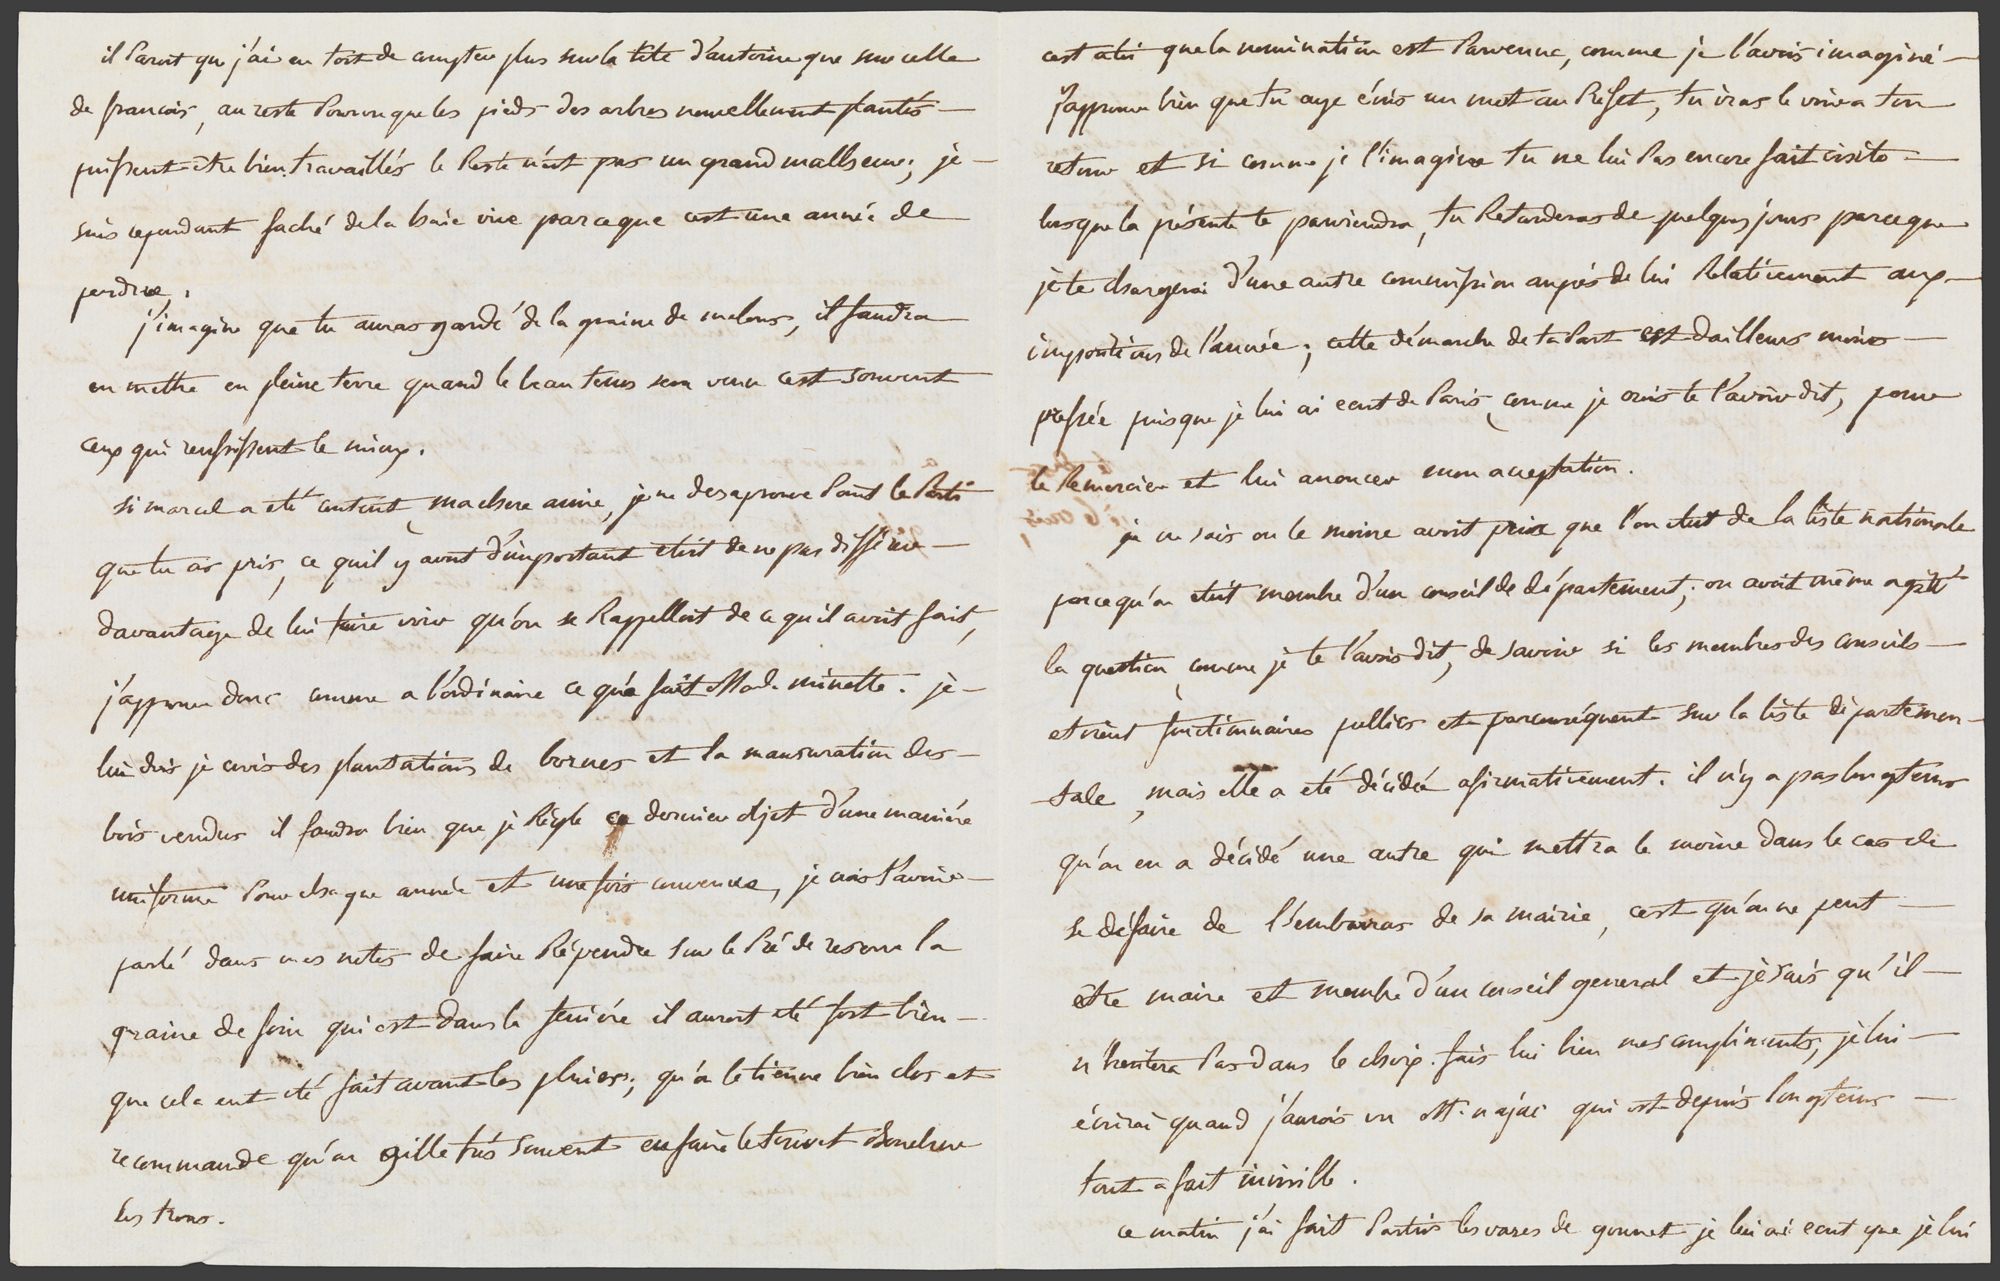 il Paroit que j'ai eu tort de compter plus sur la tête d'antoine que sur celle
de francois, au reste Pourvu que les pieds des arbres nouvellement plantés
puissent etre bien travaillés le Reste n'est pas un grand malheur; je
suis cependant faché de la haie vive parceque cest une année de
perdue.
j'imagine que tu auras gardé de la graine de melons, il faudra
en mettre en pleine terre quand le beau tems sera venu cest souvent
ceux qui reussissent le mieux.
si marcel a eté content, ma chere amie, je ne desaprouve Point le Parti
que tu as pris, ce quil y avoit d'important etoit de ne pas differer
davantage de lui faire voir qu'on se Rappelloit de ce qu'il avoit fait,
j'approuve donc comme a l'ordinaire ce qu'a fait Mad. minette. je
lui dois je crois des plantations de bornes et la mensuration des
bois vendus il faudra bien que je Règle ce dernier objet d'une manière
uniforme Pour chaque année et une fois convenue, je crois t'avoir
parlé dans mes notes de faire Répendre sur le Pré de reserve la
graine de foin qui est dans la feniére il auroit eté fort bien
que cela eut eté fait avant les pluies; qu'on le tienne bien clos et
recommande qu'on y aille trés souvent en faire le tour et boucher
les trous.
cest a lui que la nomination est Parvenue, comme je l'avois imaginé
j'approuve bien que tu aye écris un mot au Prefet, tu iras le voir a ton
retour et si comme je l'imagine tu ne lui as Pas encore fait visite
lorsque la présente te parviendra, tu Retarderas de quelques jours parceque
je te chargerai d'une autre commission auprés de lui Relativement aux
impositions de l'année; cette démarche de ta Part est dailleurs moins
pressée puisque je lui ai ecrit de Paris, comme je crois te l'avoir dit, pour
le Remercier et lui anoncer mon acceptation.
je ne sais ou le moine avoit pris que l'on etoit de la liste nationale
parce qu'on etoit membre d'un conseil de département; on avoit même agité
la question, comme je te l'avois dit, de savoir si les membres des conseils
etoient fonctionnaires publics et parconséquent sur la liste départemen-
tale, mais elle a eté décidée afirmativement. il n'y a pas longtems
qu'on en a décidé une autre qui mettra le moine dans le cas de
se défaire de l'embarras de sa mairie, cest qu'on ne peut
être maire et membre d'un conseil general et je sais qu'il
n'hesitera Pas dans le choix. fais lui bien mes compliments, je lui
écrirai quand j'aurois vu Mr. najac qui est depuis longtems
tout a fait invisible.
ce matin j'ai fait Partir les vases de gounet je lui ai ecrit que je lui